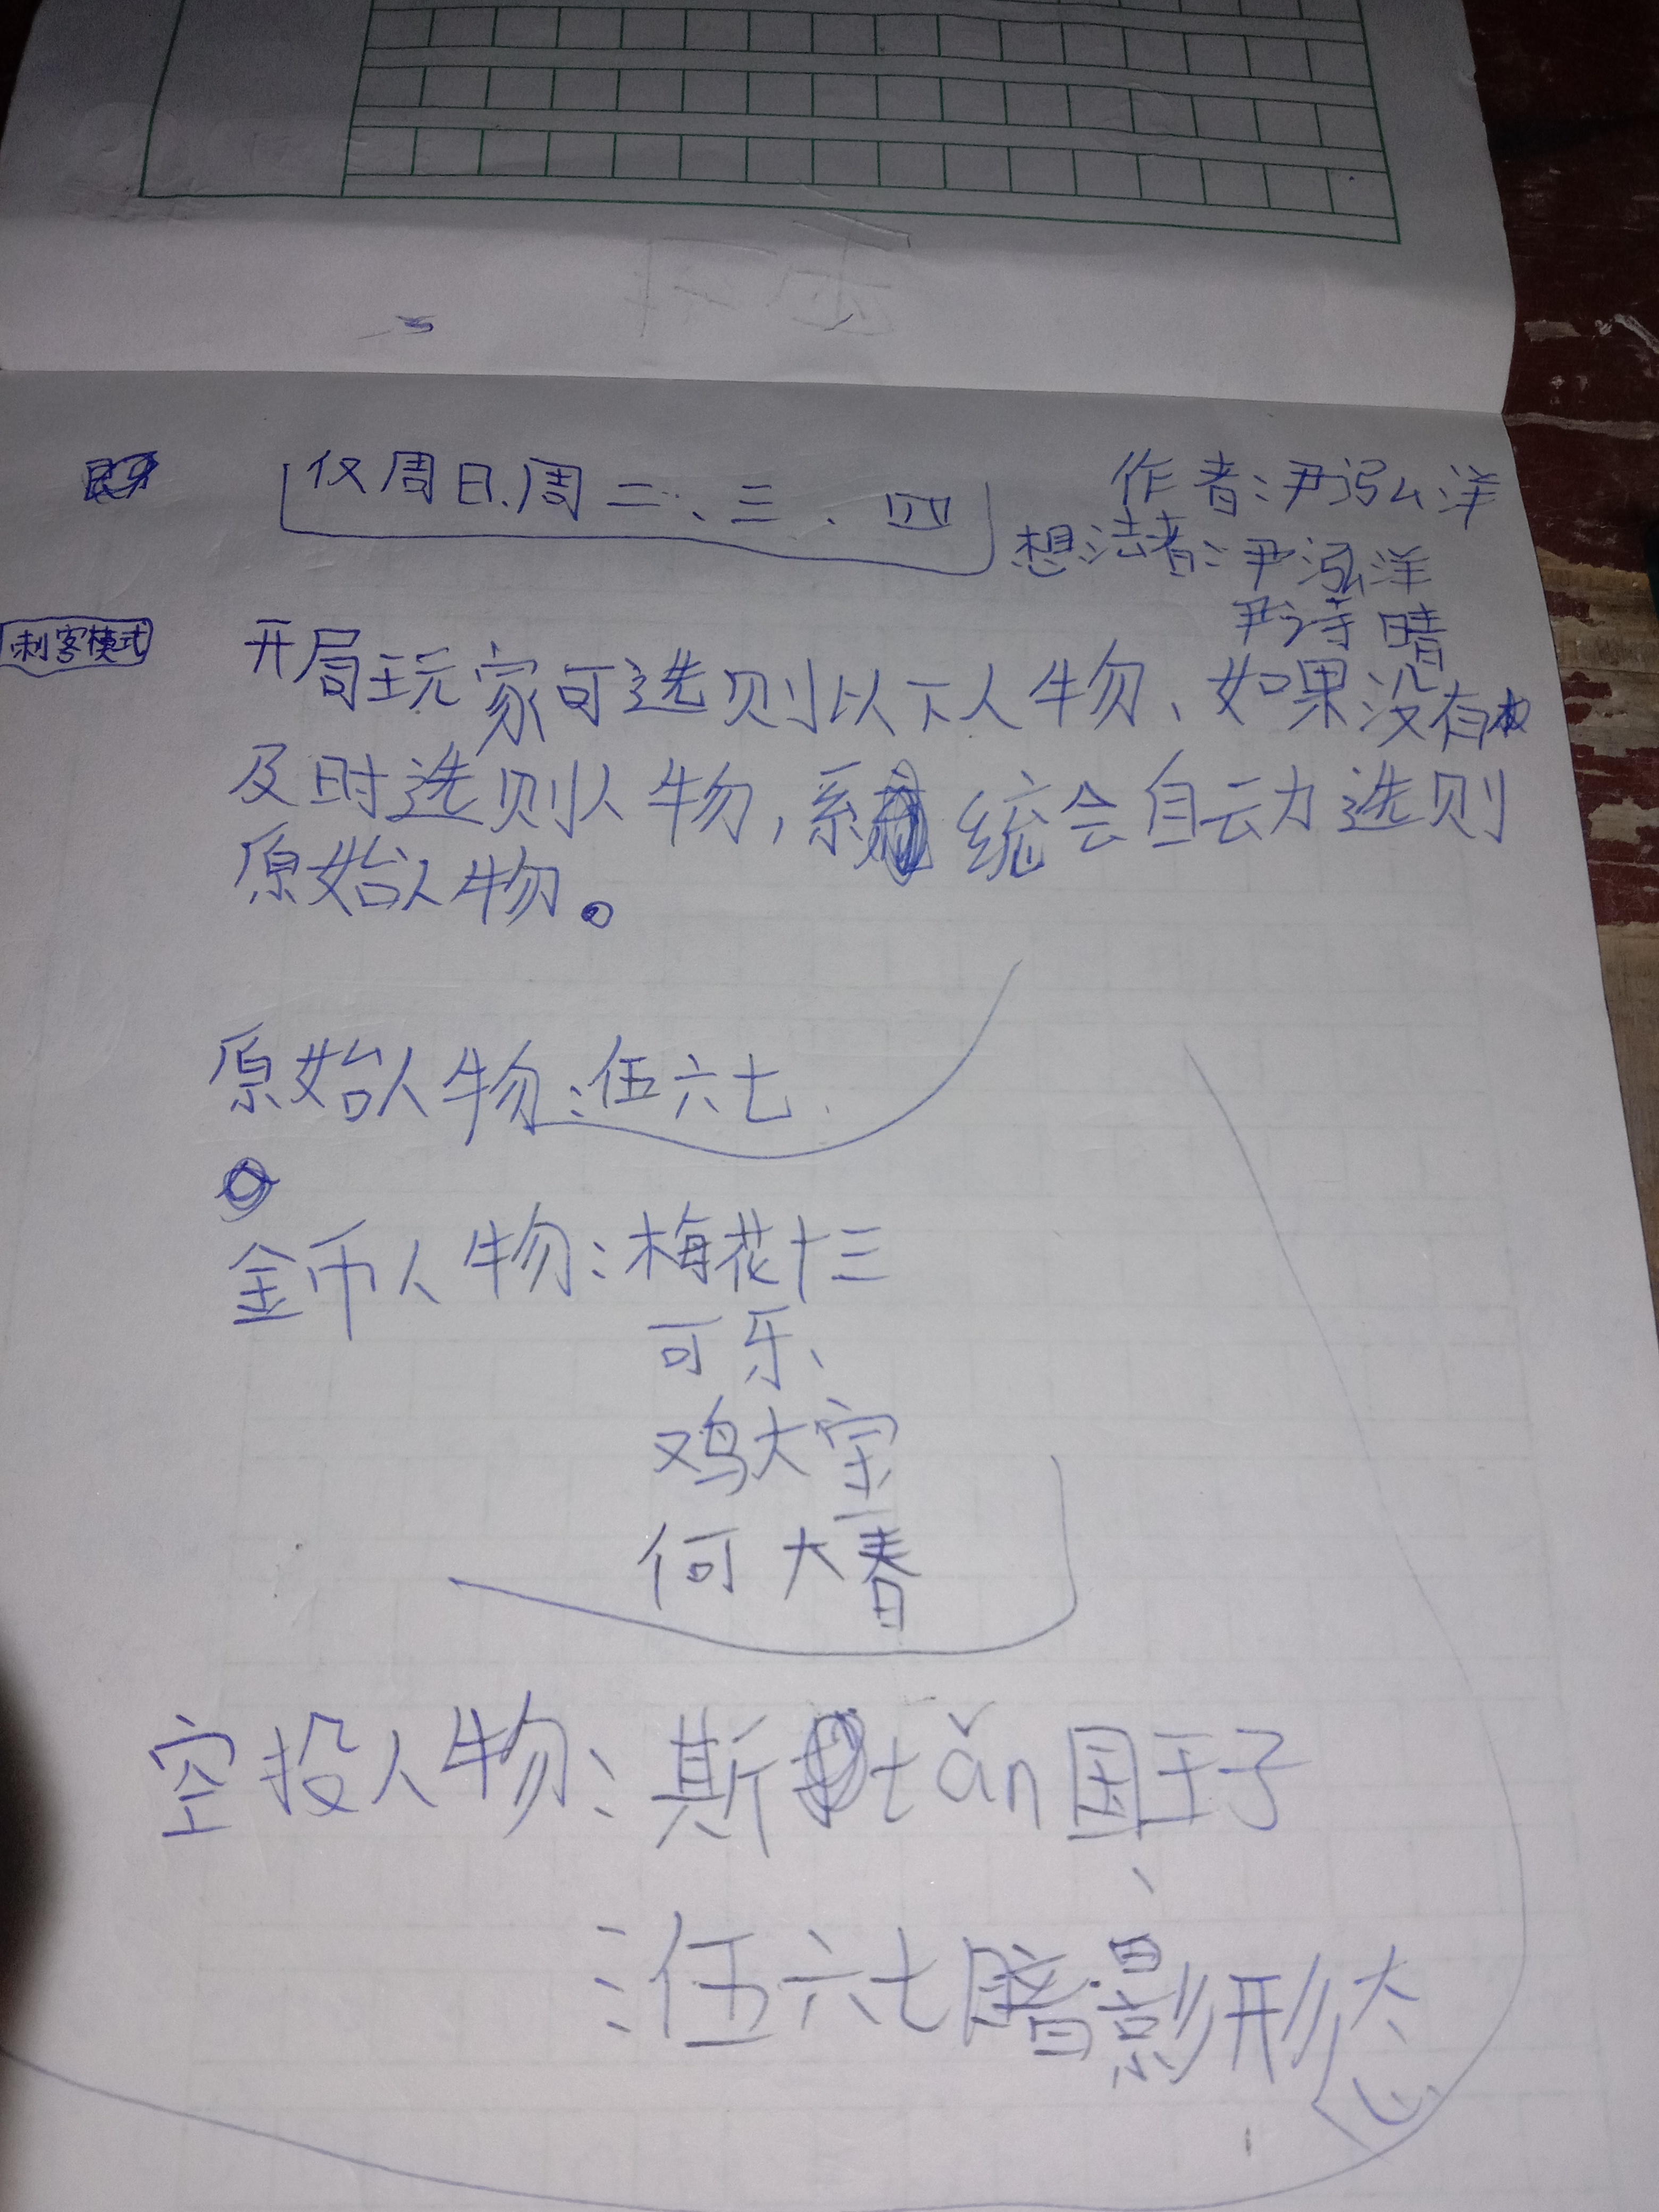 仅周日、周二、三、四
作者：尹泓洋
想法者：尹泓洋
尹诗晴
刺客模式
开局玩家可选则以下人物、如果没有
及时选则人物，系统会自动选则
原始人物。
原始人物：伍六七
金币人物：梅花十三
可乐、
鸡大宝
何大春
空投人物：斯tǎn国王子
：伍六七暗影形态